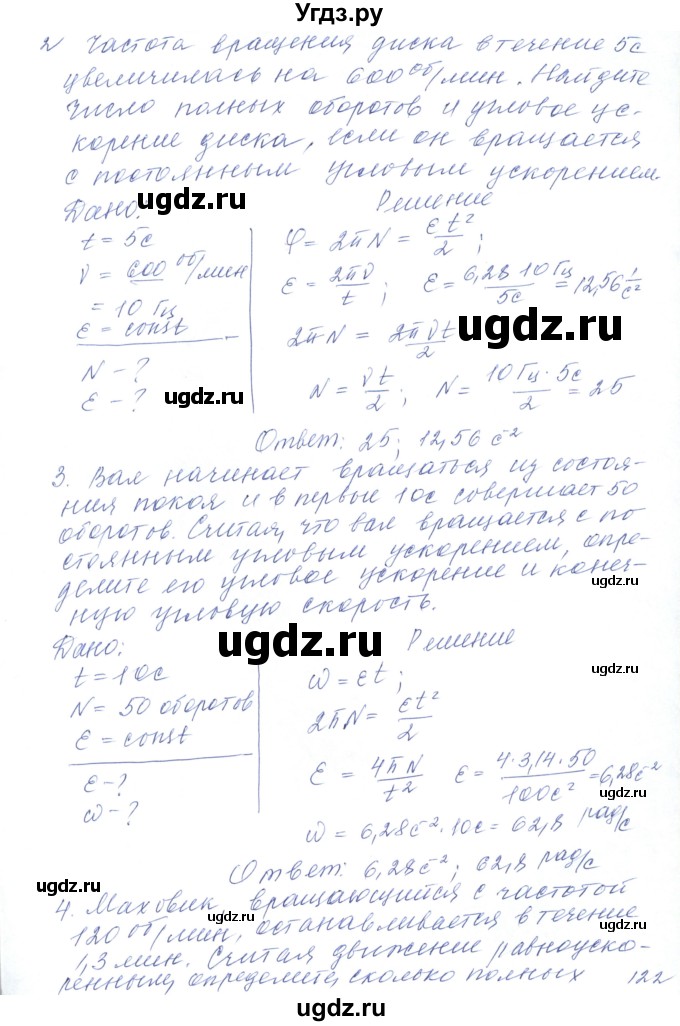 Угдз.ру
2 Частота вращения диска в течение 5с
увеличилась на 600 об/мин. Найдите
число полных оборотов и угловое ус-
корение диска, если он вращается
с постоянным угловым ускорением.
Дано: Решение
t = 5с
ν = 600 об/мин
= 10 Гц
ε = const
N - ?
ε - ?
φ = 2πN = εt²/2;
ε = 2πν/t; ε = 6,28·10 Гц/5с = 12,56 1/с²
2πN = 2πνt/2
N = νt/2; N = 10 Гц·5с/2 = 25
Ответ: 25; 12,56 с⁻²
3. Вал начинает вращаться из состоя-
ния покоя и в первые 10с совершает 50
оборотов. Считая, что вал вращается с по-
стоянным угловым ускорением, опре-
делите его угловое ускорение и конеч-
ную угловую скорость.
Дано: Решение
t = 10с
N = 50 оборотов
ε = const
ε - ?
ω - ?
ω = εt;
2πN = εt²/2
ε = 4πN/t² ε = 4·3,14·50/100с² = 6,28с⁻²
ω = 6,28с⁻²·10с = 62,8 рад/с
Ответ: 6,28с⁻²; 62,8 рад/с
4. Маховик, вращающийся с частотой
120 об/мин, останавливается в течение
1,3 мин. Считая движение равноуско-
ренным, определите, сколько полных
122
ugdz.ru
ugdz.ru
ugdz.ru
ugdz.ru
ugdz.ru
ugdz.ru
ugdz.ru
ugdz.ru
ugdz.ru
ugdz.ru
ugdz.ru